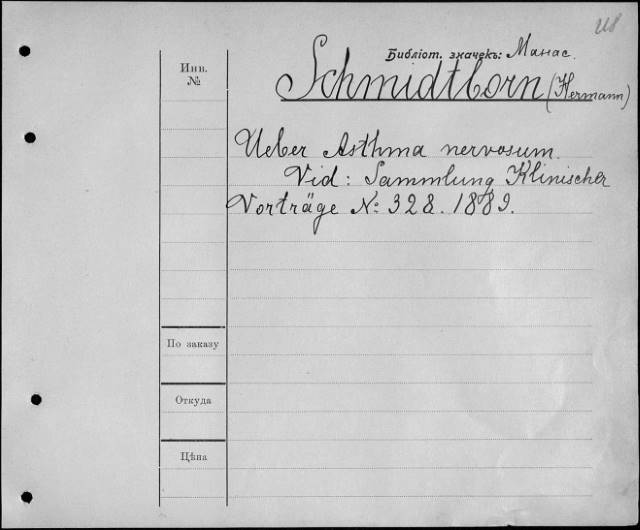 Библіот. значекъ: Манас.
Инв.
№
Schmidtborn (Hermann)
Ueber Asthma nervosum.
Vid: Sammlung Klinischer
Vorträge № 328. 1889.
По заказу
Откуда
Цѣна